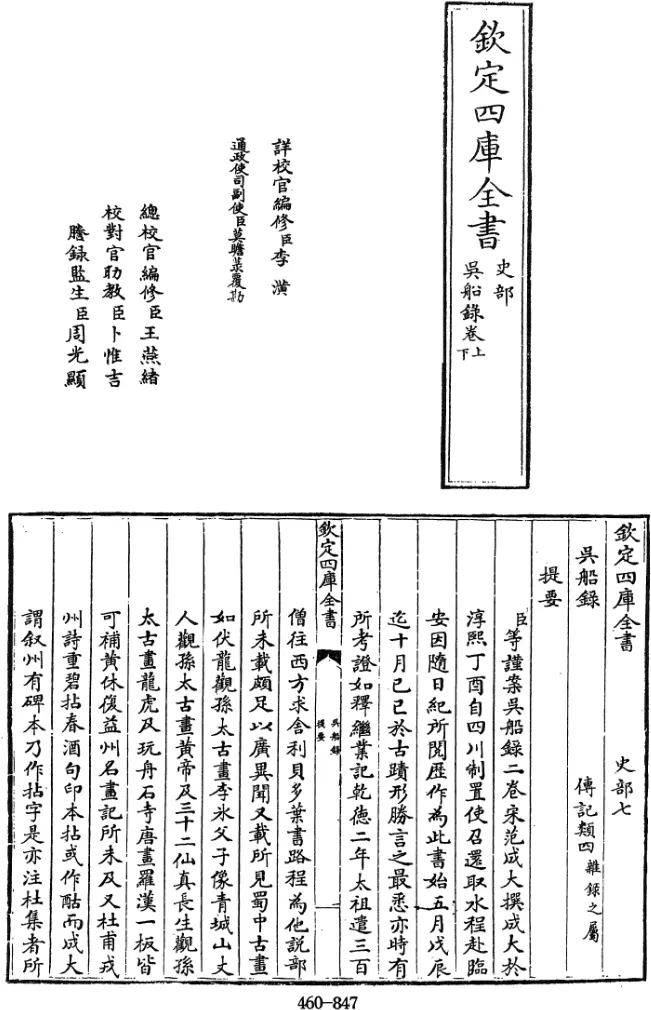 欽定四庫全書
史部
吳船錄卷上下
詳校官編修臣李潢
通政使司副使臣莫瞻菉覆勘
總校官編修臣王燕緒
校對官助教臣卜惟吉
謄錄監生臣周光顯
欽定四庫全書 史部七
吳船錄 傳記類四雜錄之屬
提要
臣等謹案吳船錄二卷宋范成大撰成大於
淳熙丁酉自四川制置使召還取水程赴臨
安因隨日紀所閱歴作為此書始五月戊辰
迄十月己巳於古蹟形勝言之最悉亦時有
所考證如釋繼業記乾徳二年太祖遣三百
欽定四庫全書
吳船錄
提要
僧往西方求舍利貝多葉書路程為他説部
所未載頗足以廣異聞又載所見蜀中古畫
如伏龍觀孫太古畫李氷父子像青城山丈
人觀孫太古畫黄帝及三十二仙真長生觀孫
太古畫龍虎及玩舟石寺唐畫羅漢一板皆
可補黄休復益州名畫記所未及又杜甫戎
州詩重碧拈春酒句印本拈或作酤而成大
謂叙州有碑本乃作拈字是亦注杜集者所
460-847